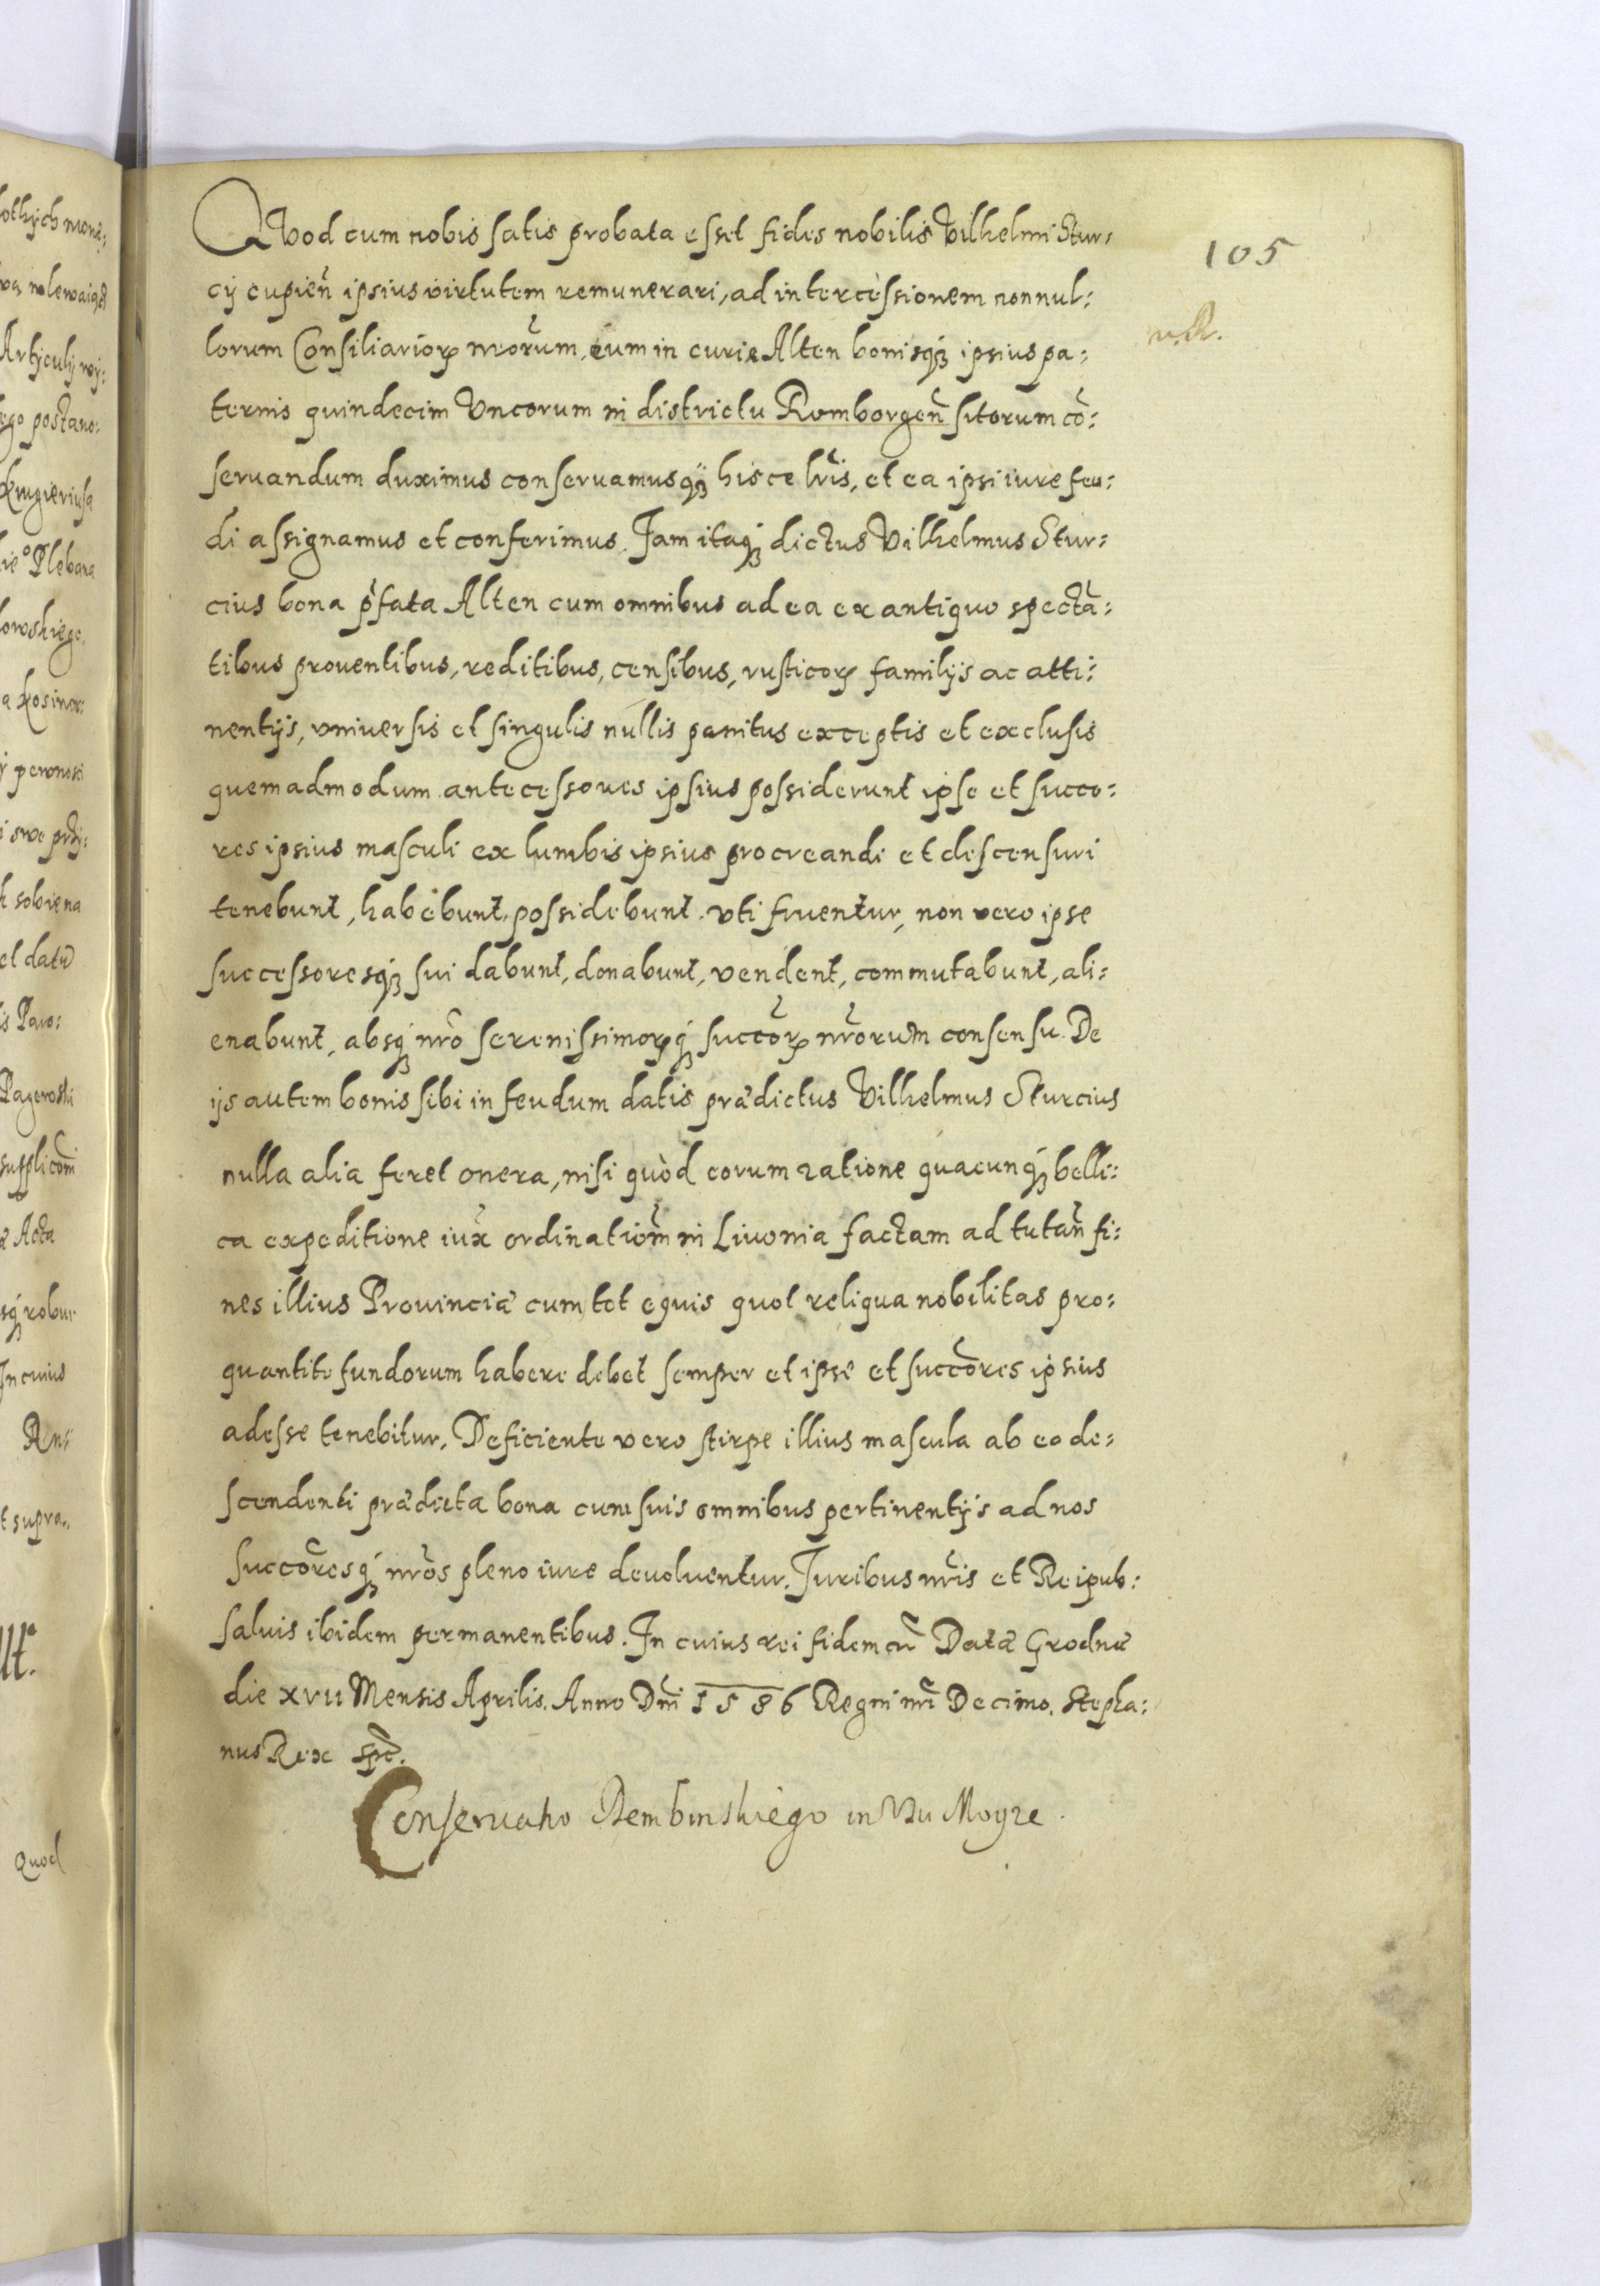 105
QVod cum nobis satis probata esset fides nobilis Vilhelmi Stur:
cij cupień ipsius virtutem remunerari, ad intercessionem nonnul:
lorum Consiliarioꝝ nrõrum, eum in curia Alten bonisqꝫ ipsius pa:
ternis quindecim Vncorum in districtu Romborgeñ sitorum cõ:
seruandum duximus conseruamusqꝫ hisce lrĩs, et ea ipsi iure feu:
di assignamus et conferimus. Jam itaqꝫ dictus Vilhelmus Stur:
cius bona p̃fata Alten cum omnibus ad ea ex antiquo spectã:
tibus prouentibus, reditibus, censibus, rusticoꝝ familijs ac atti:
nentijs, vniuersis et singulis nullis penitus exceptis et exclusis
quemadmodum antecessores ipsius possiderunt ipse et succo:
res ipsius masculi ex lumbis ipsius procreandi et descensuri
tenebunt, habebunt, possidebunt. vti fruentur, non vero ipse
successoresqꝫ sui dabunt, donabunt, vendent, commutabunt, ali:
enabunt, absqꝫ nrõ serenissimoꝝqꝫ succõꝝ nrõrum consensu. De
ijs autem bonis sibi in feudum datis prædictus Vilhelmus Sturcius
nulla alia feret onera, nisi quòd eorum ratione quacunqꝫ belli:
ca expeditione iux̃ ordinatiom̃ in Liuonia factam ad tutañ fi:
nes illius Prouinciæ cum tot equis quot reliqua nobilitas pro:
quantite fundorum habere debet semper et ipse et succõres ipsius
adesse tenebitur. Deficiente vero stirpe illius mascula ab eo de:
scendenti prædicta bona cum suis omnibus pertinentijs ad nos
succõresqꝫ nrõs pleno iure deuoluentur. Juribus nrĩs et Reipub:
saluis ibidem permanentibus. In cuius rei fidem cũ Datæ Grodnæ
die XVII Mensis Aprilis. Anno Dñi 1586 Regni nrĩ Decimo. Stepha:
nus Rex
Conseruatio Rembinskiego in Moyze